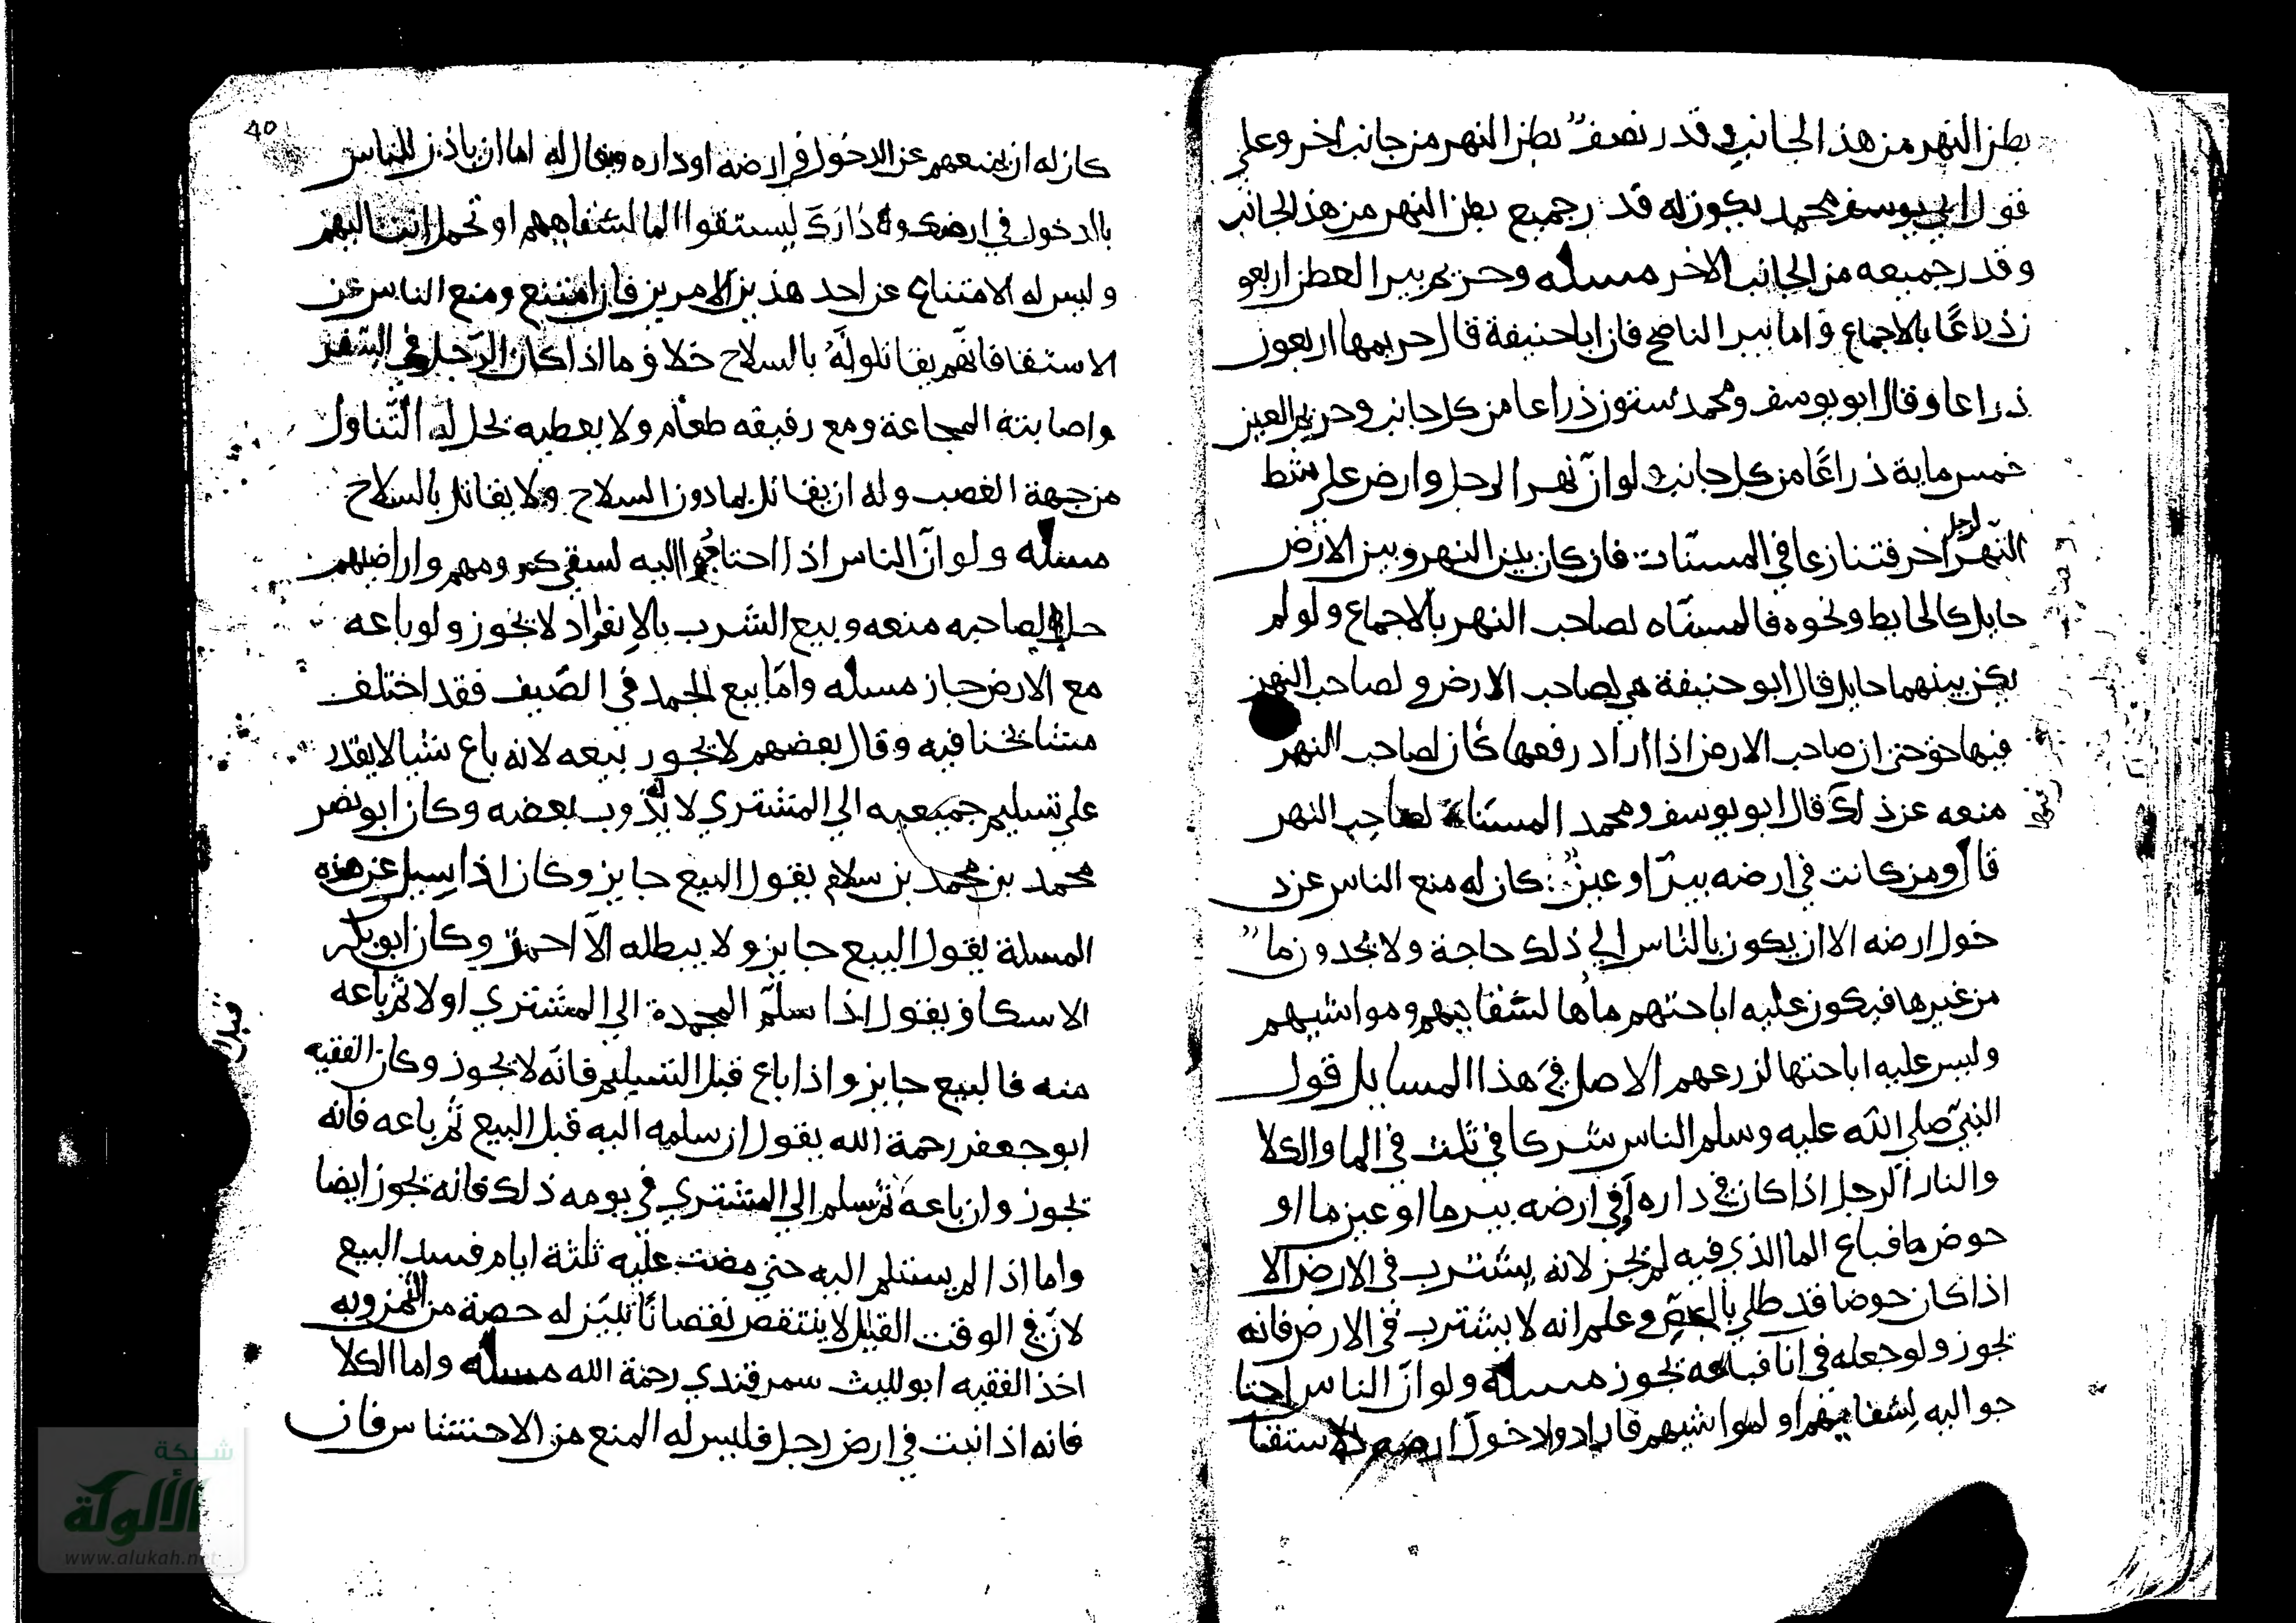 بطن النهر من هذا الجانب و قدر نصف بطن النهر من جانب اخر وعلى
قول ابي يوسف ومحمد يكون له قدر جميع بطن النهر من هذا الجانب
وقدر جميعه من الجانب الاخر مسئله وحريم بير العطن اربعو
ن ذراعًا بالاجماع واما بير الناضح فان ابا حنيفة قال حريمها اربعون
ذراعا وقال ابو يوسف ومحمد ستون ذراعا من كل جانب وحريم العين
خمس ماية ذراعًا من كل جانب لو انّ نهر الرجل وارض على شط
النّهر لرجل اخر فتنازعا في المسنّات فان كان بين النهر وبين الارض
حايل كالحايط ونحوه فالمسنّاه لصاحب النهر بالاجماع ولو لم
يكن بينهما حايل قال ابو حنيفة هي لصاحب الارض و لصاحب النهر
فيها حق حتى ان صاحب الارض اذا اراد رفعها كان لصاحب النهر
منعه عن ذلك قال ابو يوسف ومحمد المسنّاة لصاحب النهر
قال ومن كانت في ارضه بيرًا وعين كان له منع الناس عن د
خول ارضه الا ان يكون بالناس الي ذلك حاجة ولا يجدون ما
من غيرها فيكون عليه اباحتهم ماها لشفاههم ومواشيهم
وليس عليه اباحتها لزرعهم الاصل في هذا المسايل قول
النبيّ صلي الله عليه وسلم الناس شركا في ثلث في الما والكلا
والنار الرجل اذا كان في داره او في ارضه بير ما او عين ما او
حوض ما فباع الما الذي فيه لم يجز لانه يشترب في الارض الا
اذا كان حوضا قد طلي بالجص وعلم انه لا يشترب في الارض فانه
يجوز ولو جعله في انا فباعه يجوز مسئله ولو انّ الناس احتا
جوا اليه لشفاههم او لمواشيهم فارادو الدخول ارضه للاستقا
40
كان له ان يمنعهم عن الدخول في ارضه او داره ويقال له اما ان ياذن للناس
باالدخول في ارضك و دارك ليستقوا الما لشفاههم او تحمل انت اليهم
وليس له الامتناع عن احد هذين الامرين فان امتنع ومنع الناس عن
الاستقا فانّهم يقاتلونه بالسلاح خلاف ما اذا كان الرّجل في السّفر
واصابته المجاعة ومع رفيقه طعام ولا يعطيه يحل له التّناول
من جهة الغصب وله ان يقاتل بما دون السلاح ولا يقاتل بالسلاح
مسئله ولو انّ الناس اذا احتاجوا اليه لسقي كرومهم واراضيهم
حل لصاحبه منعه وبيع الشرب بالانفراد لا يجوز ولو باعه
مع الارض جاز مسئله وامّا بيع الجمد في الصّيف فقد اختلف
مشايخنا فيه وقال بعضهم لا يجوز بيعه لانه باع شيا لا يقدر
علي تسليم جميعه الي المشتري لا يذوب بعضه وكان ابو نصر
محمد بن محمد بن سلام يقول البيع جايز وكان اذا سيل عن هذه
المسلة يقول البيع جايز ولا يبطله الّا احمق وكان ابو بكر
الاسكاف يقول اذا سلّم المجمدة الي المشتري اولا ثم باعه
منه فالبيع جايز واذا باع قبل التسليم فانّه لا يجوز وكان الفقيه
ابو جعفر رحمة الله يقول ان سلمه اليه قبل البيع ثم باعه فانه
يجوز وان باعه ثم سلم الي المشتري في يومه ذلك فانه يجوز ايضا
واما اذا لم يستلم اليه حتي مضت عليه ثلثة ايام فسد البيع
لانّ في الوقت القليل لا ينتقص نقصانًا تبيّن له حصة من الثمن وبه
اخذ الفقيه ابو لليث سمرقندي رحمة الله مسئله واما الكلا
فانه اذا نبت في ارض رجل فليس له المنع من الاحتشاش فان
شبكة
الألوكة
www.alukah.net